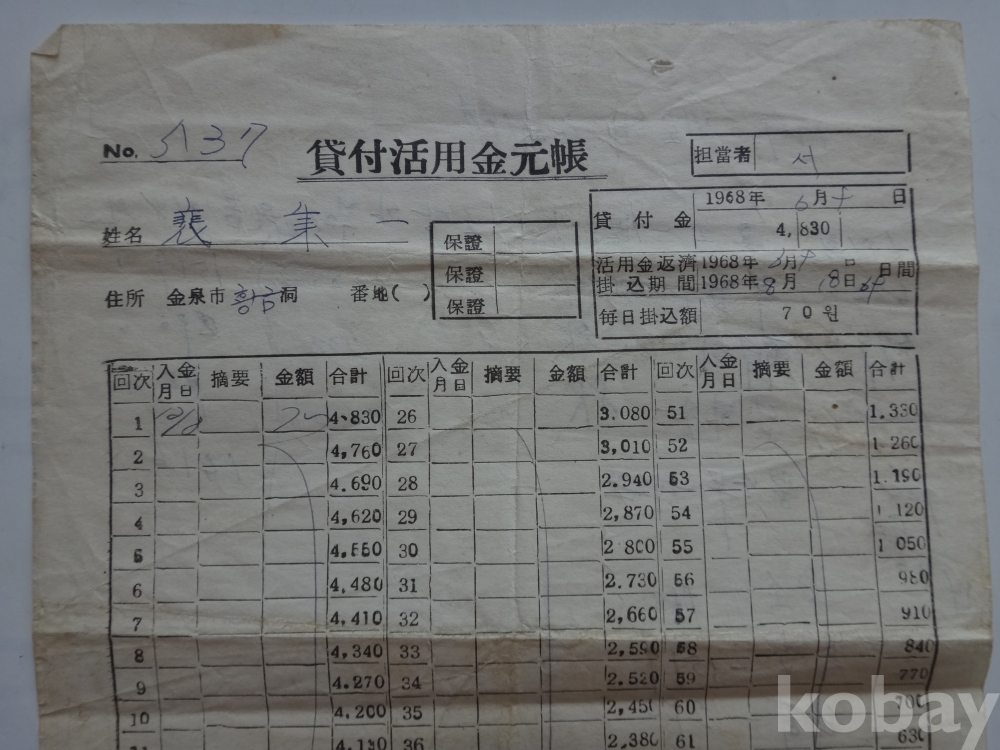 No. 5137
貸付活用金元帳
担當者 서
姓名 裵 集 一
保證
保證
保證
貸付金 1968年 6月 日
4,830
活用金返濟 1968年 月 日
掛込期間 1968年 8月 18日 日間
毎日掛込額 70원
住所 金泉市 황금 洞 番地( )
回次 入金月日 摘要 金額 合計 回次 入金月日 摘要 金額 合計 回次 入金月日 摘要 金額 合計
1 4.830 26 3.080 51 1.330
2 4,760 27 3,010 52 1 260
3 4.690 28 2.940 53 1.190
4 4,620 29 2,870 54 1 120
5 4,550 30 2 800 55 1 050
6 4,480 31 2.730 56 980
7 4.410 32 2,660 57 910
8 4,340 33 2,590 58 840
9 4.270 34 2.520 59 770
10 4.200 35 2,450 60 700
11 4,130 36 2,380 61 630
kobay